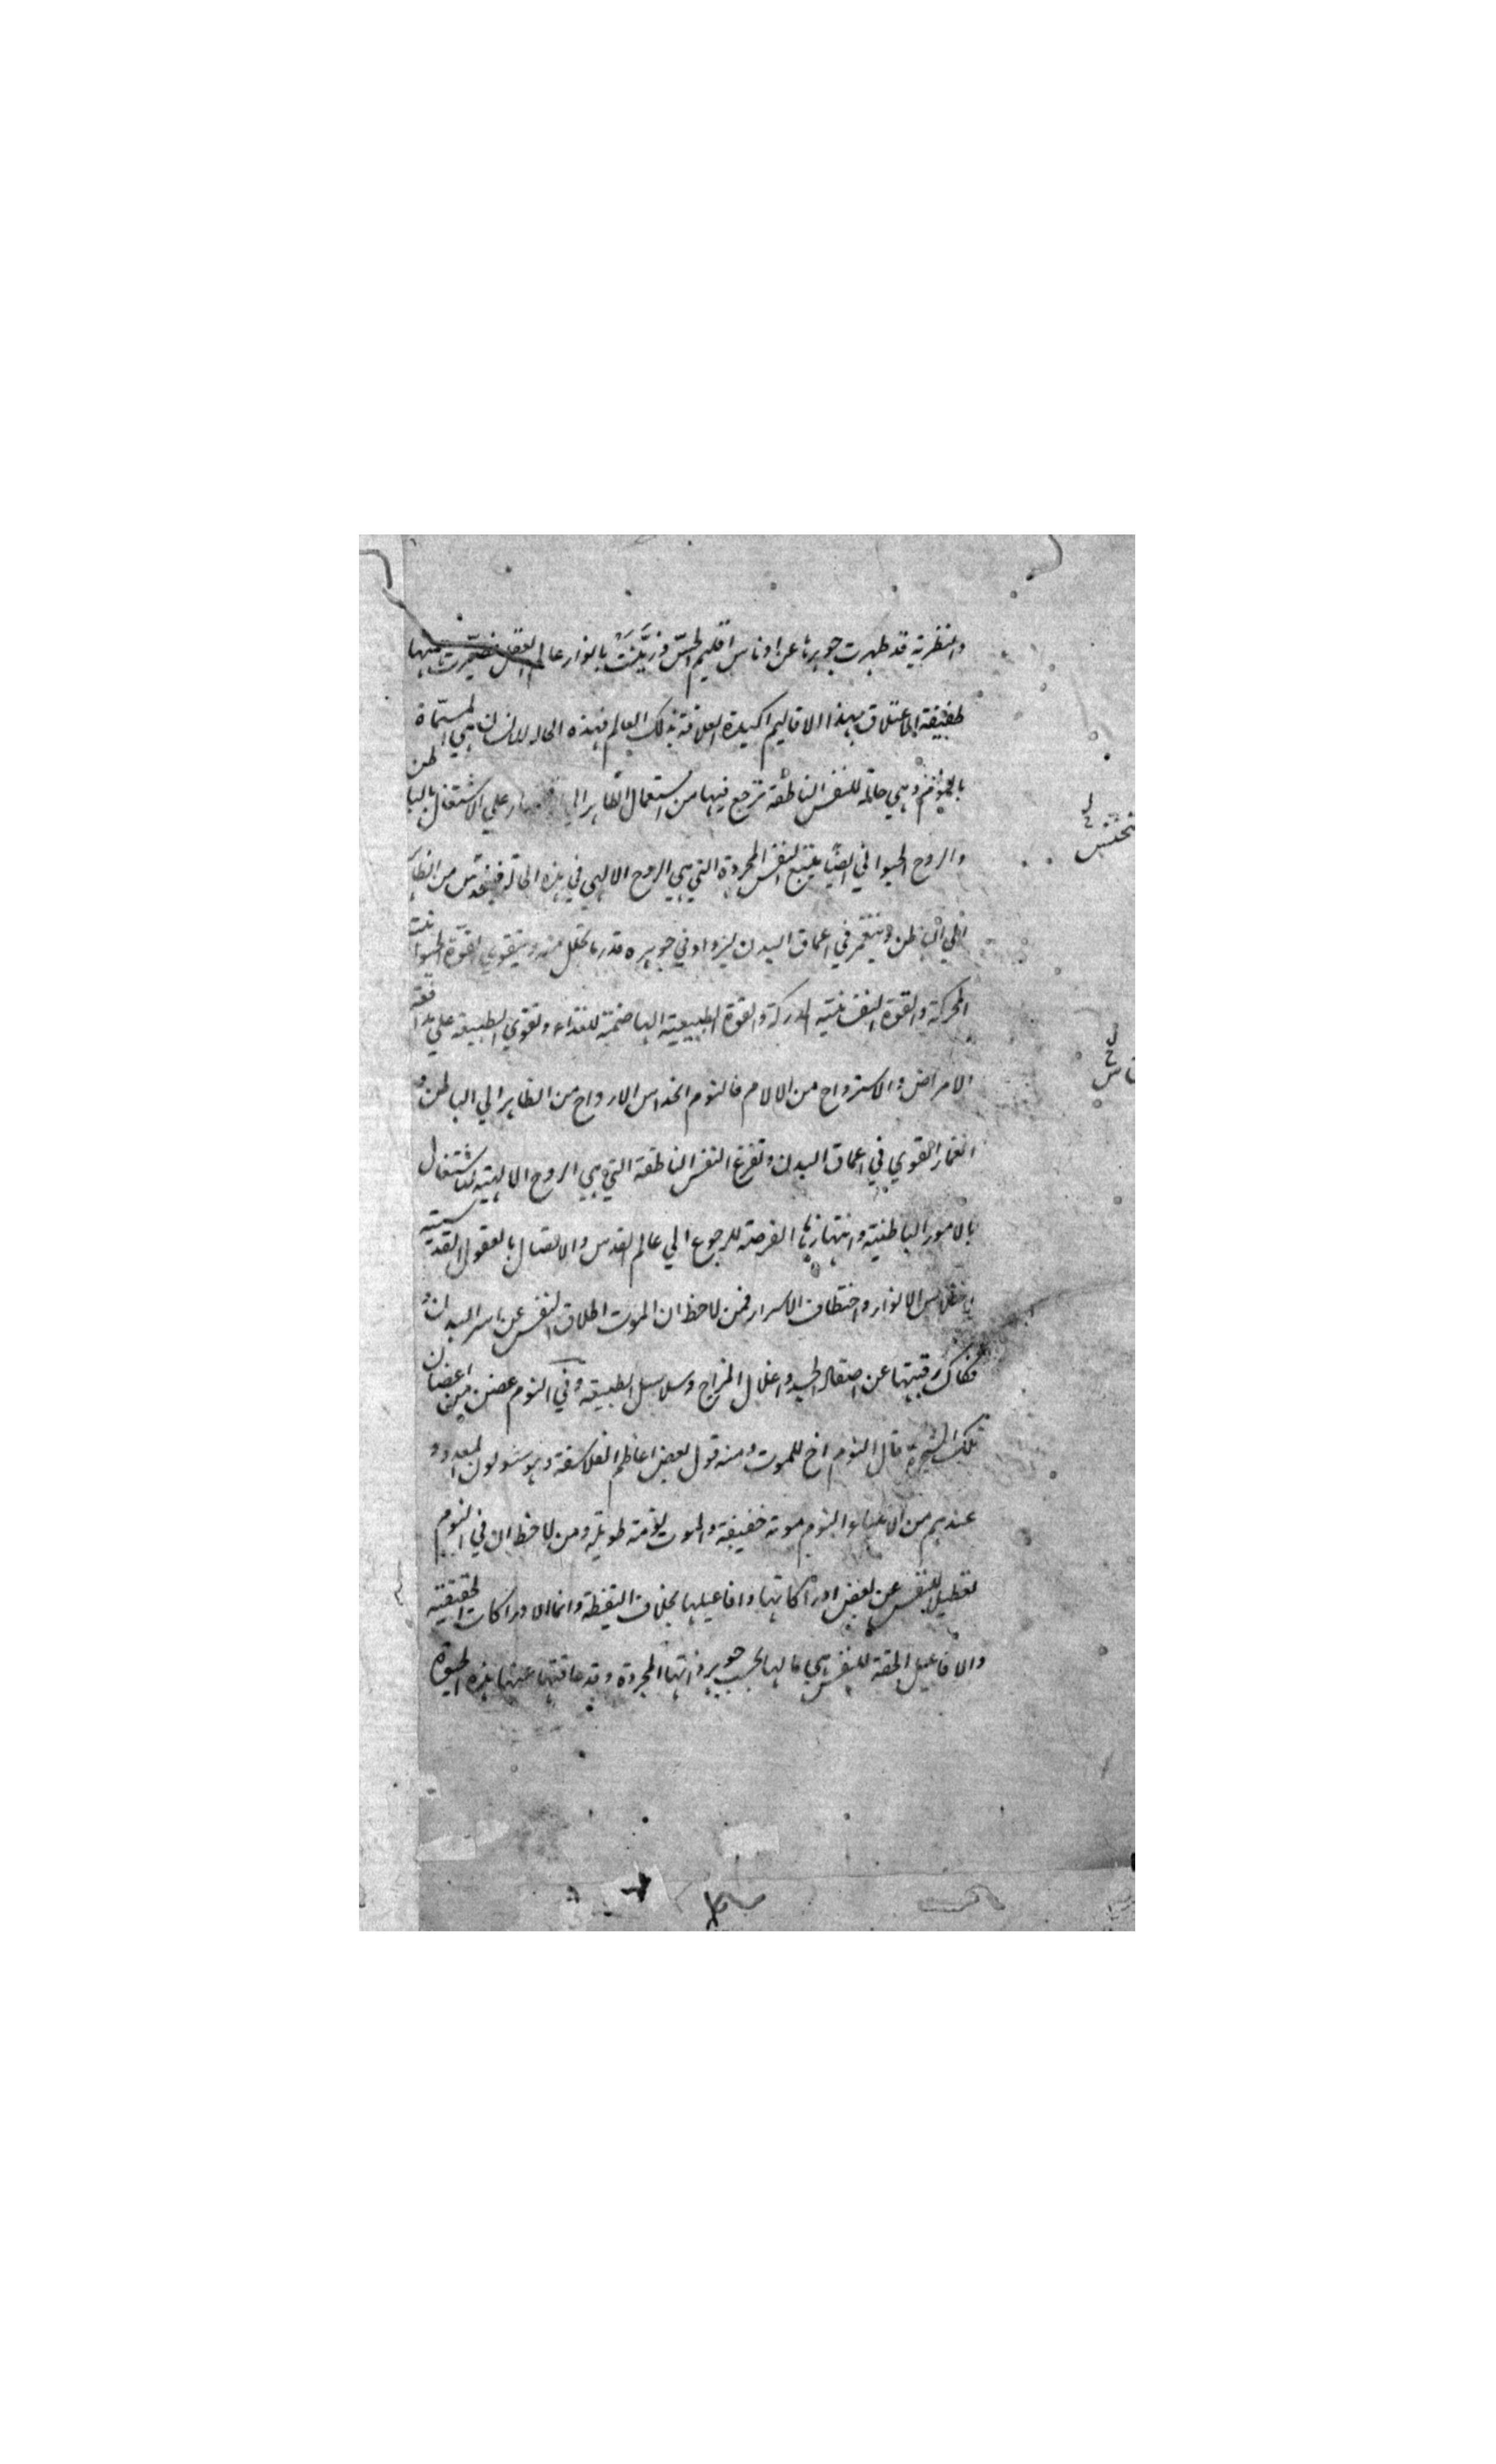 والنظرية قد طهرت جوهرها عن ادناس اقليم الحسّ وزَيَّنَتْ بانوار عالم العقل فصيّرت منها
طفيفة الاعتلاق بهذا الاقاليم اكيدة العلاقة بذلك العالم فهذه الحالة للانسان هي المسمّاة
وهي حالة للنفس الناطقة ترجع فيها من استعمال الظاهر الي علي الاشتغال بالباطن
والروح الحيواني ايضًا يتبع النفس المجردة التي هي الروح الالهي في هذه الحالة من الظا
الي الباطن وينغمر في اعماق البدن ليزداد في جوهره قدر ما تحلل منه ويتقوي القوة الحيوانية
المحركة والقوة النفسانية المدركة والقوة الطبيعية الهاضمة للغذاء وتقوي الطبيعة علي مدافعة
الامراض والاسترواح من الالام فالنوم انخداس الارواح من الظاهر الي الباطن و
انغمار القوي في اعماق البدن وتفرغ النفس الناطقة التي هي الروح الالهية للاشتغال
بالامور الباطنية وانتهازها الفرصة للرجوع الي عالم القدس والاتصال بالعقول القدسية
الانوار واختطاف الاسرار فمن لاحظ ان الموت اطلاق النفس عن اسر البدن و
فكاك رقبتها عن الجسد واغلال المزاج وسلاسل الطبيعة وفي النوم غصن من اغصان
تلك الشجرة قال النوم اخ للموت ومنه قول بعض اعاظم الفلاسفة وهو شولون المعدود
عندهم من الانبياء النوم موتة خفيفة والموت نومة طويلة ومن لاحظ ان في النوم
تعطيل النفس عن بعض ادراكاتها وافاعيلها بخلاف اليقظة وانما الادراكات الحقيقية
والافاعيل الحقة للنفس هي ما لها بحسب جوهر ذاتها المجردة وقد عاقتها عنها هذه الحيوة